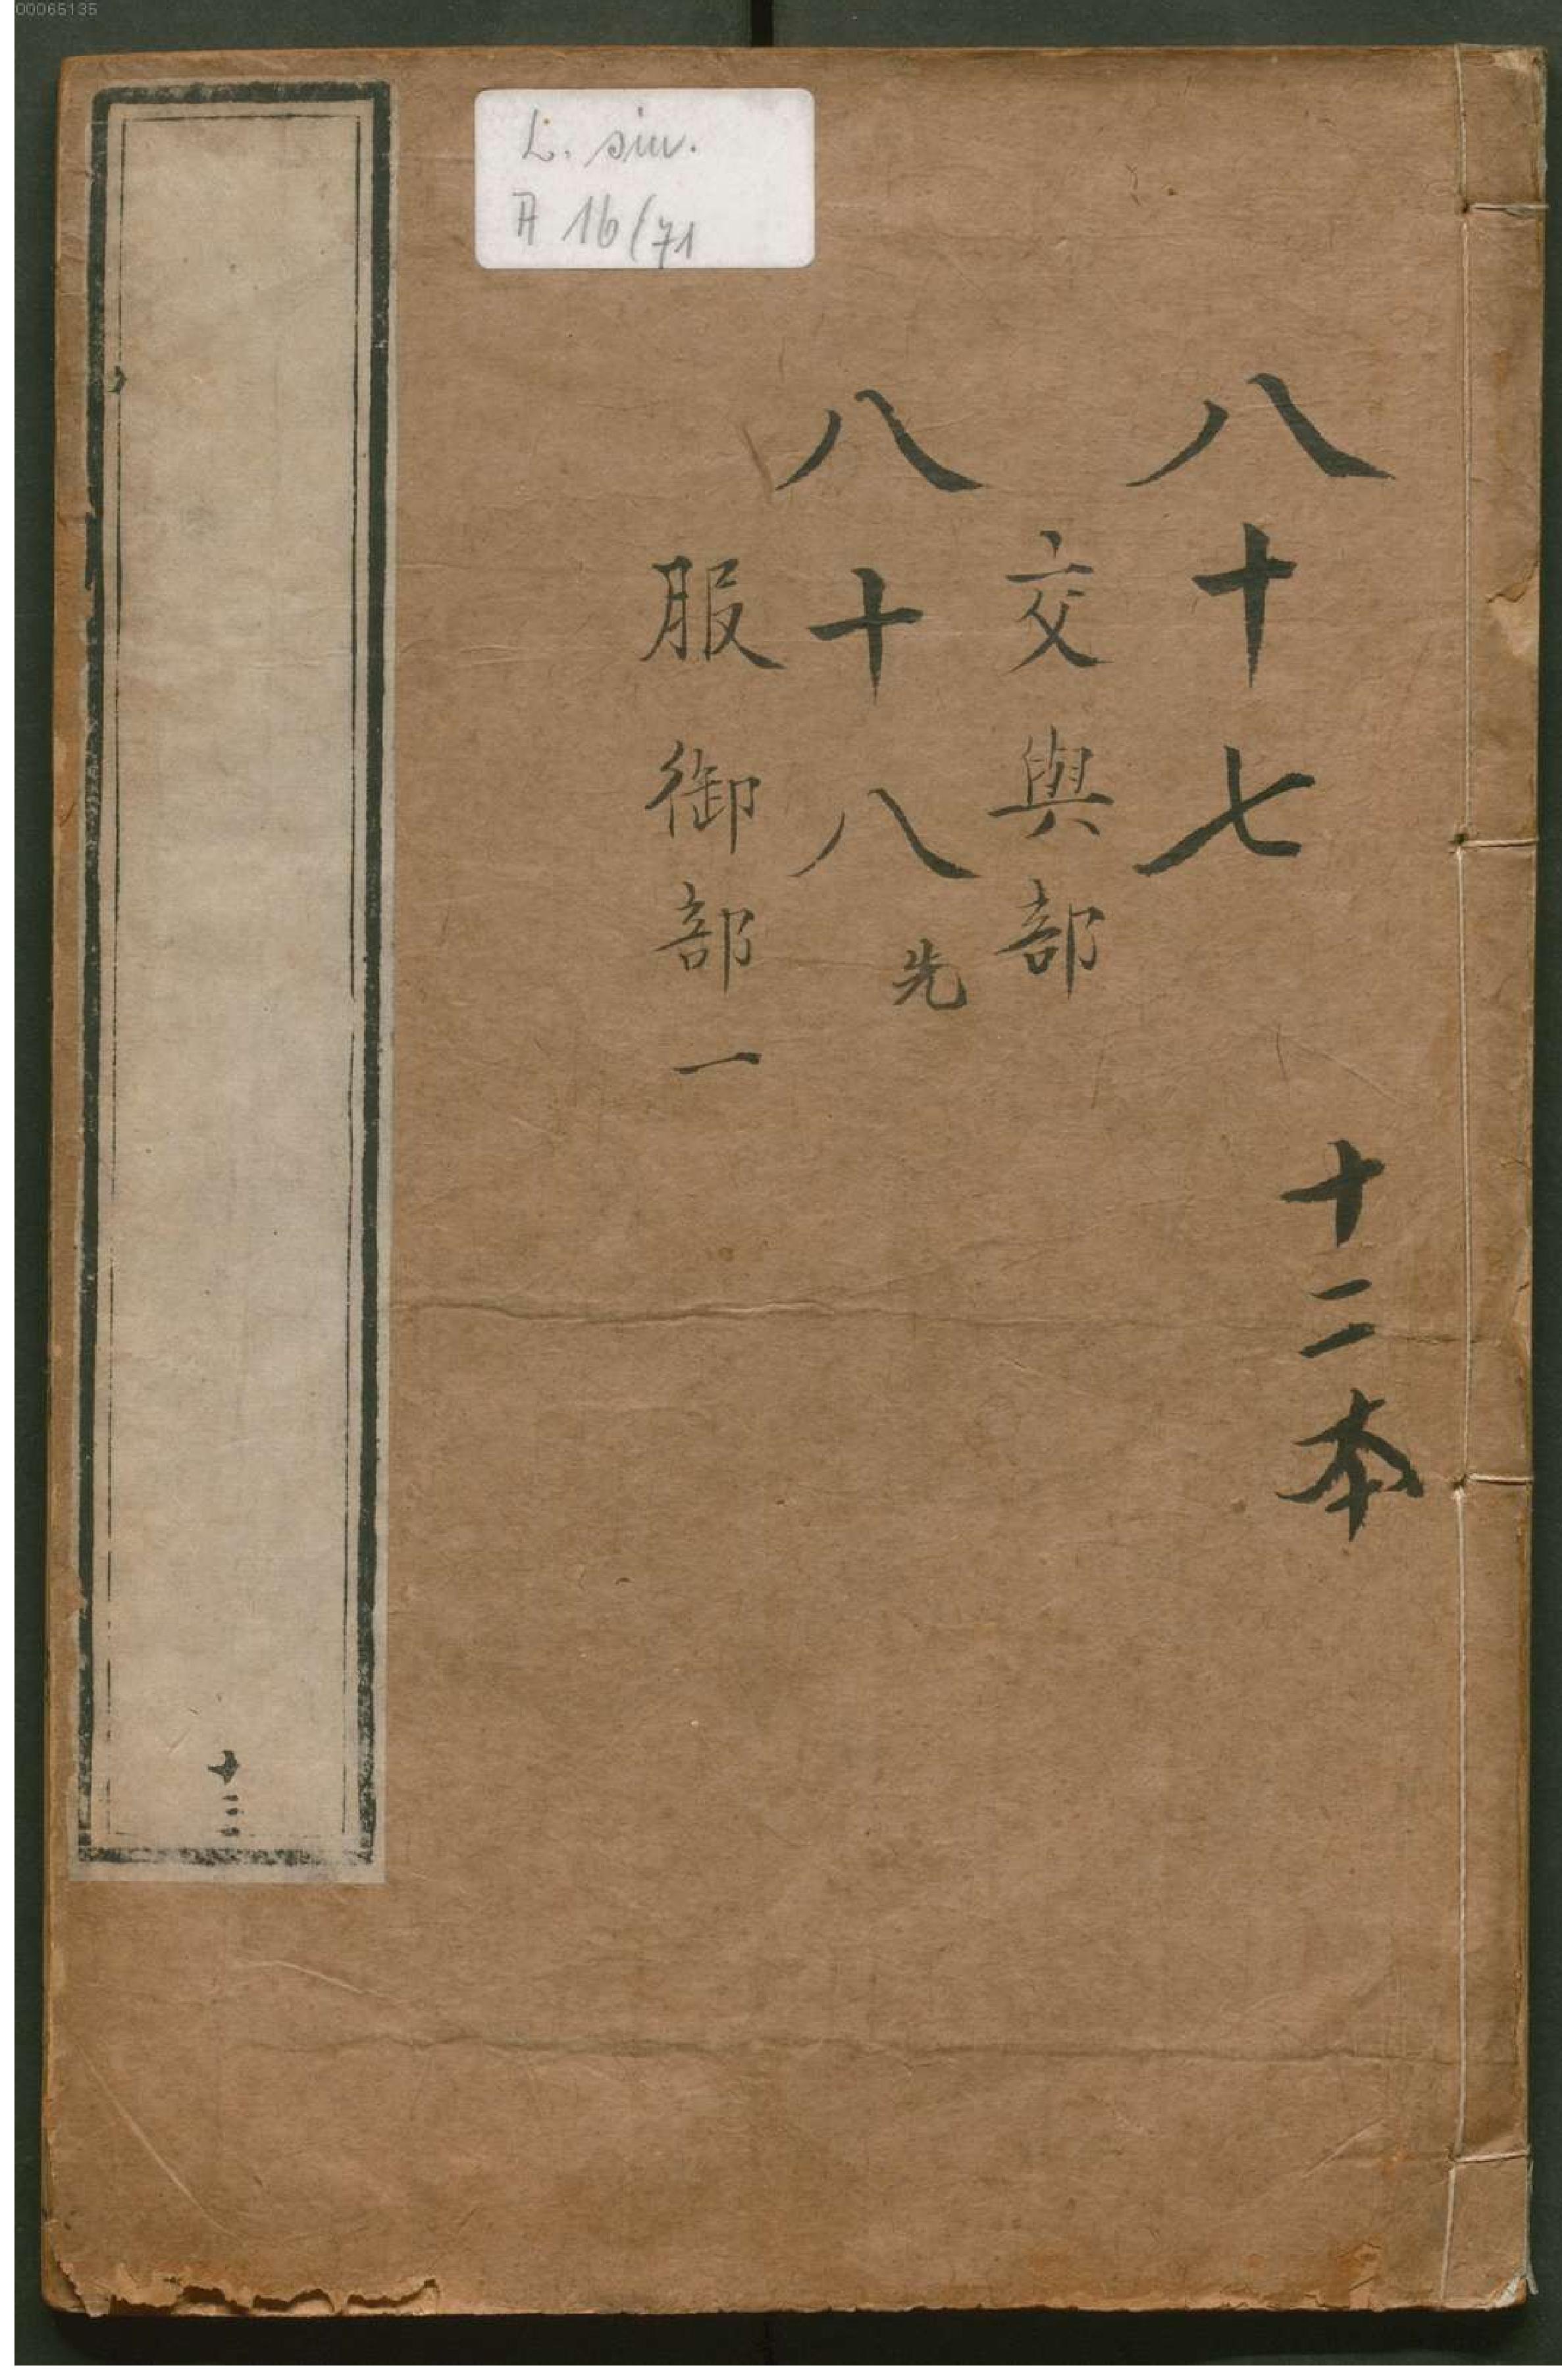 00065135
L. sin.
A 16/71
八十七
交與部
八十八
先
服御部一
十二本
十三